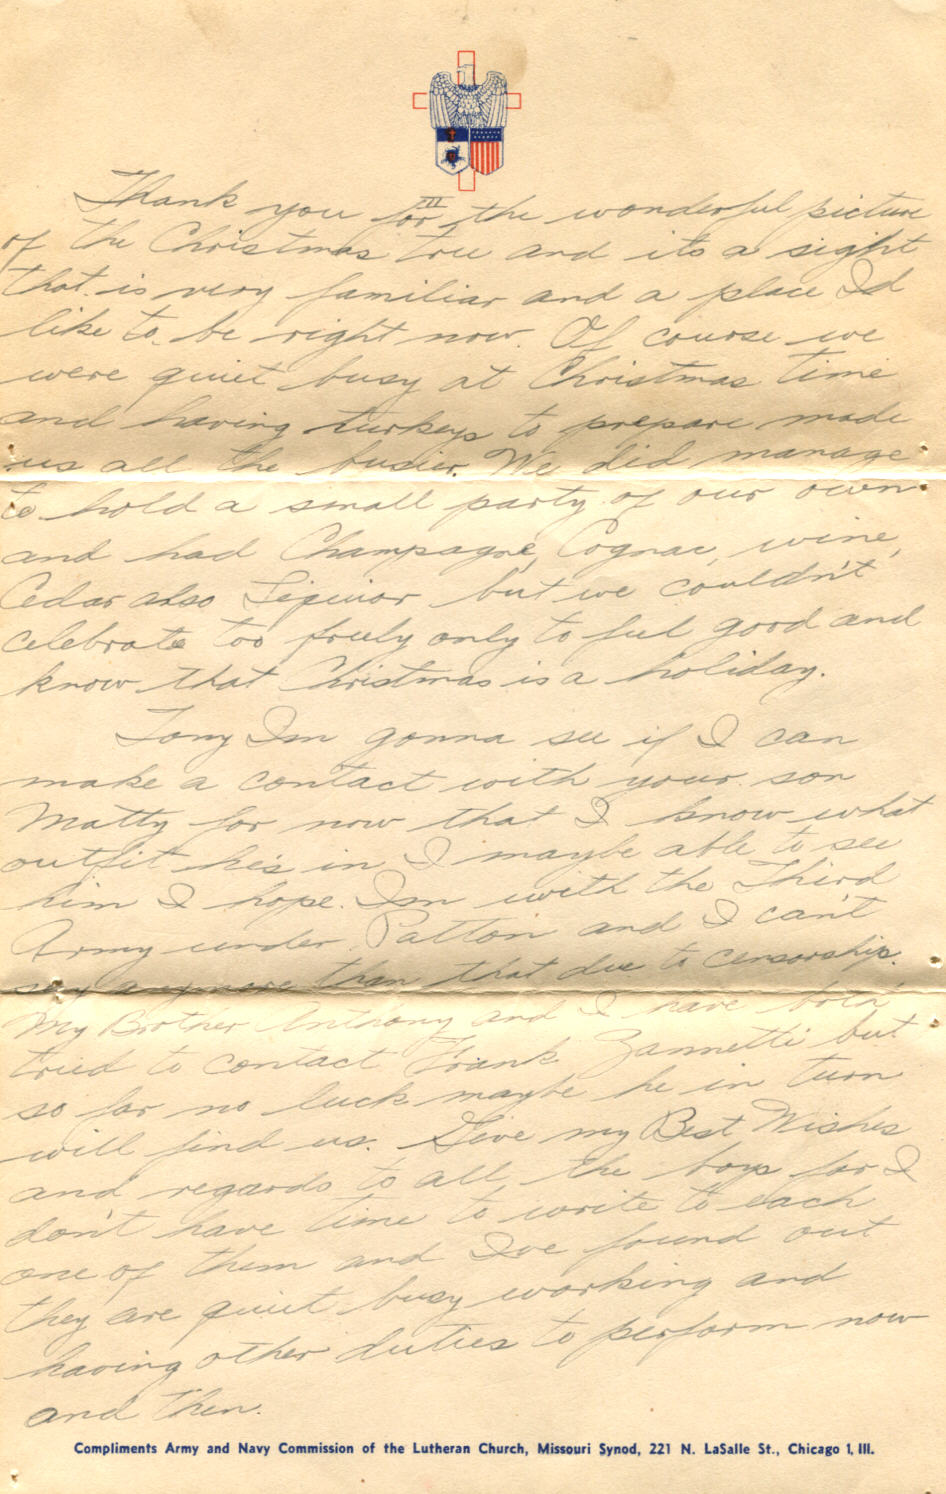 III
Thank you for the wonderful picture
of the Christmas tree and its a sight
that is very familiar and a place I'd
like to be right now. Of course we
were quiet busy at Christmas time
and having turkeys to prepare made
us all the busier. We did manage
to hold a small party of our own
and had Champagne, Cognac, wine,
Cedar also Liquior but we couldn't
celebrate too freely only to feel good and
know that Christmas is a holiday.
Tony Im gonna see if I can
make a contact with your son
Matty for now that I know what
outfit he's in I maybe able to see
him I hope. Im with the Third
Army under Patton and I can't
say anymore than that due to censorship.
My Brother Anthony and I have both
tried to contact Frank Zannetti but
so far no luck maybe he in turn
will find us. Give my Best Wishes
and regards to all the boys for I
don't have time to write to each
one of them and I've found out
they are quiet busy working and
having other duties to perform now
and then.
Compliments Army and Navy Commission of the Lutheran Church, Missouri Synod, 221 N. LaSalle St., Chicago 1, Ill.